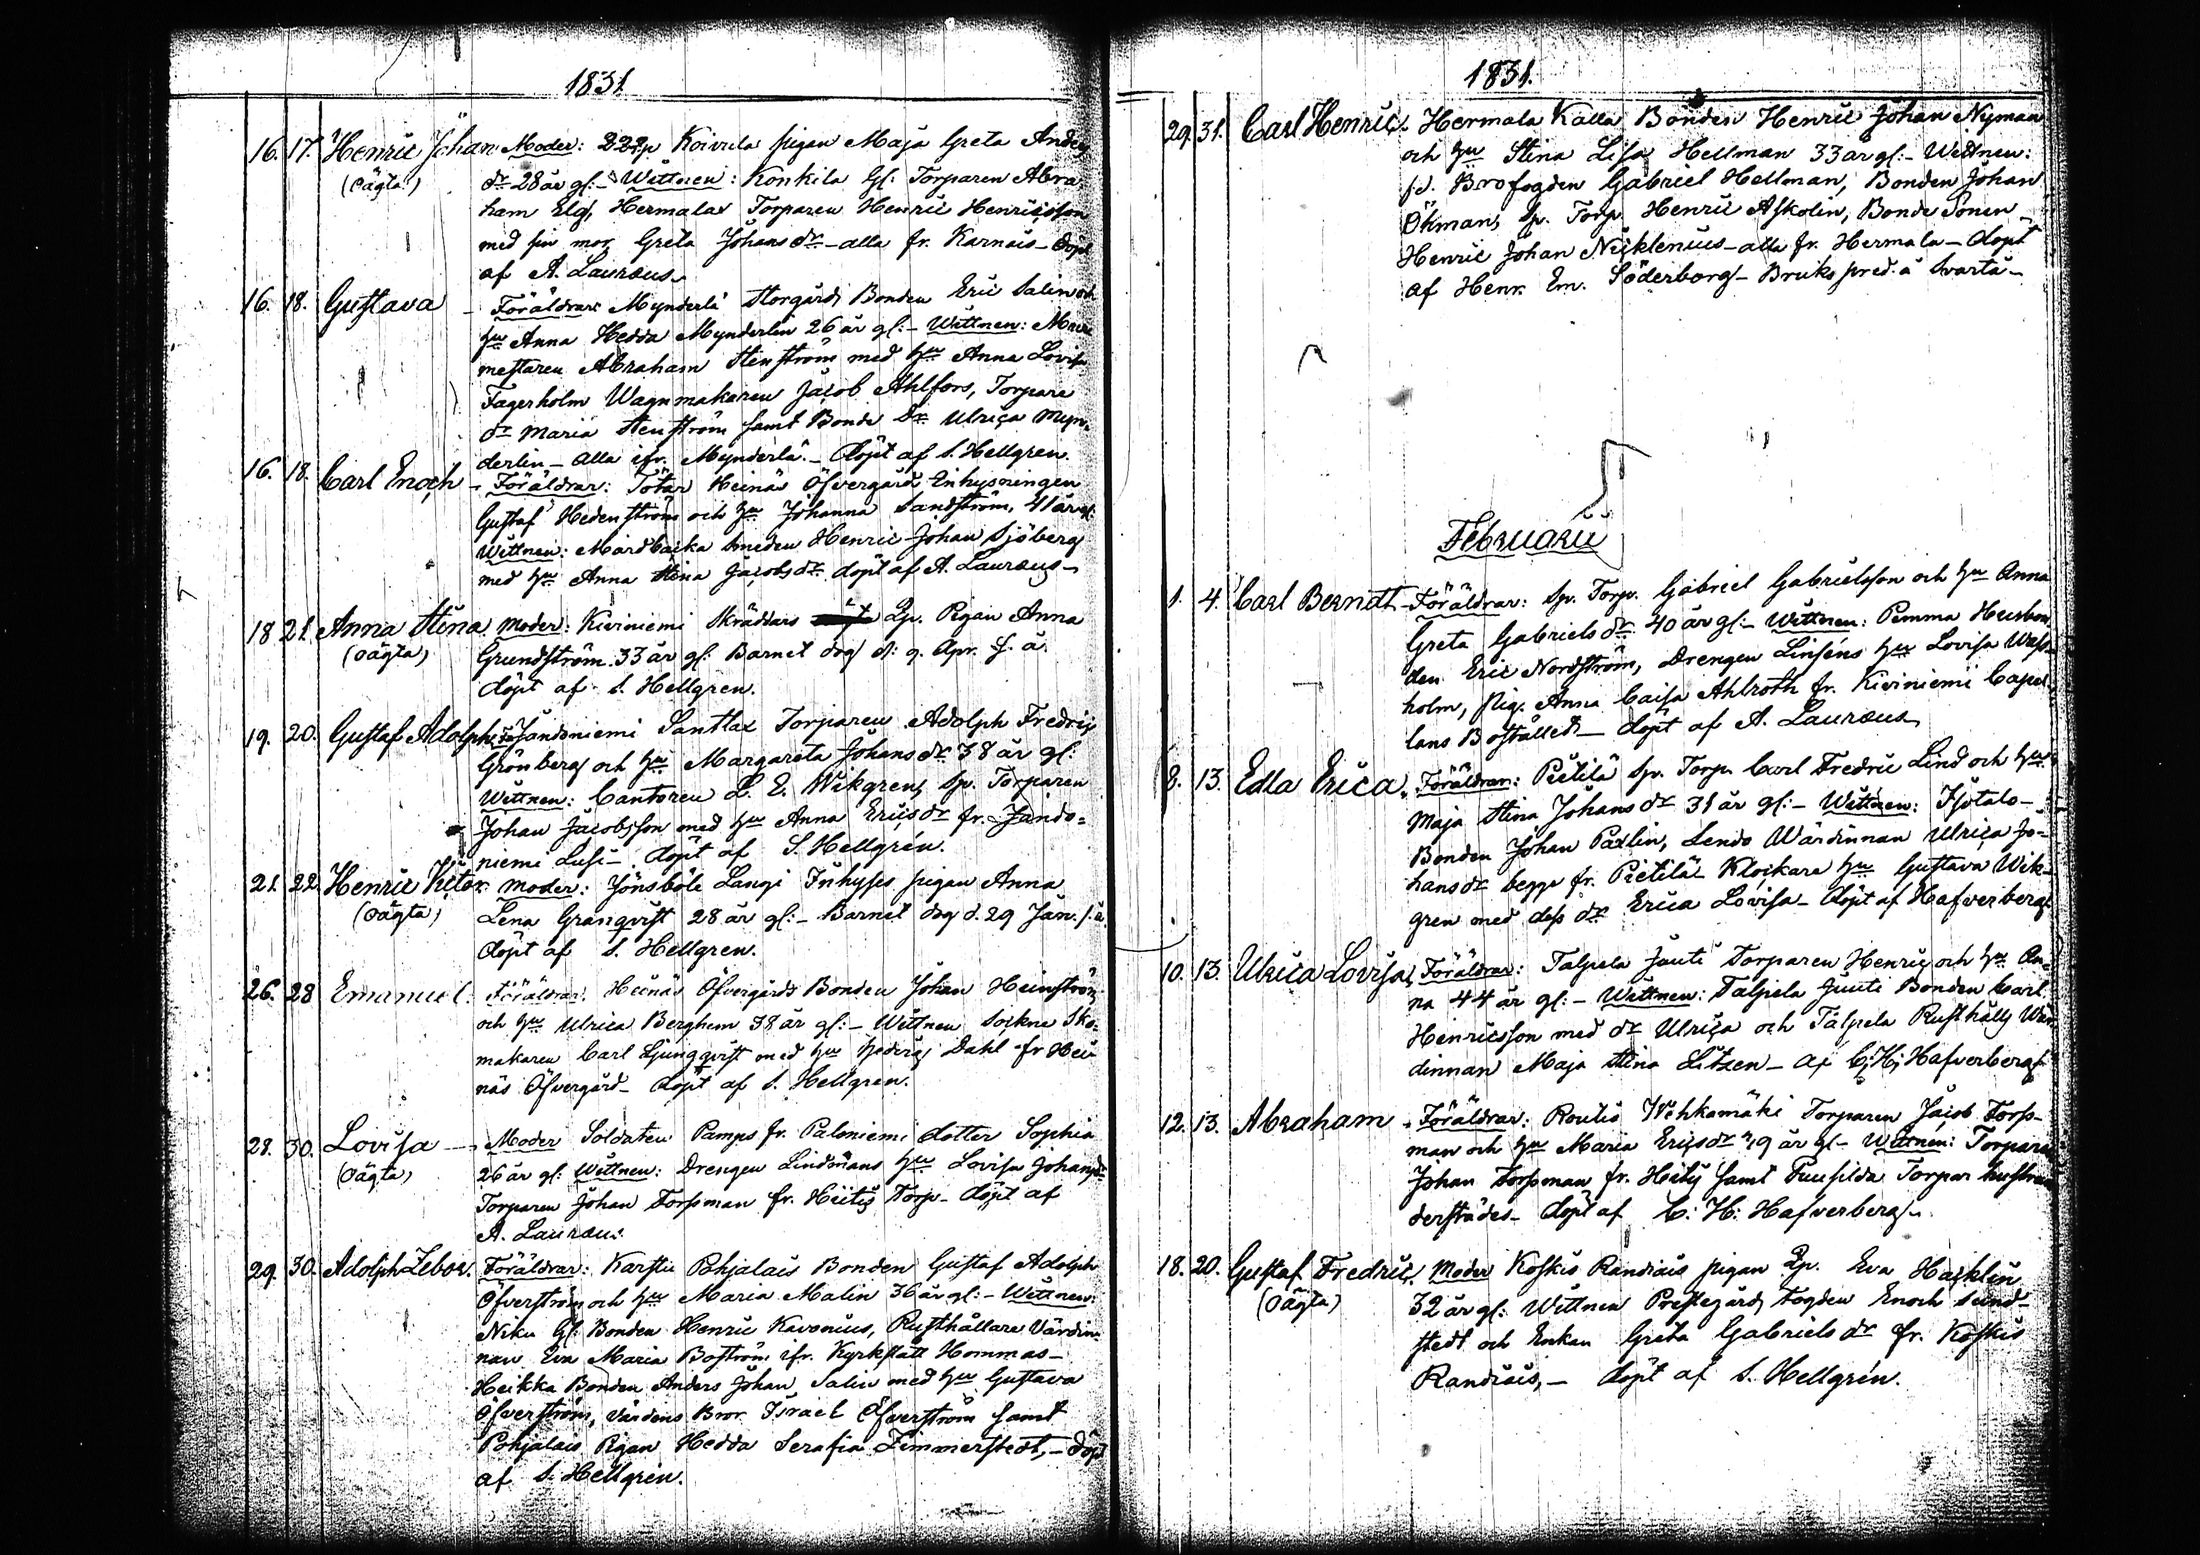 1831.
16. 17. Henric Johan Moder: Koivula pigan Maja Greta Anders
(oägta) dr 28 år gl:- Wittnen: Konkila Gl: Torparen Abra-
ham Elg, Hermalax Torparen Henric Henricsson
med sin mor Greta Johans dr - alla fr. Karnais - döpt
af A. Lauræus.
16. 18. Gustava - Föräldrar: Mynderlä Storgårds Bonden Eric Salin och
hu Anna Hedda Mynderlin 26 år gl:- Wittnen: Mur-
mestaren Abraham Stenström med hu Anna Lovisa
Fagerholm Wagnmakaren Jacob Ahlfors, Torpare
dr Maria Stenström samt Bonde Dr Ulrica Myn-
derlin - alla ifr. Mynderlä. - döpt af S. Hellgren.
16. 18. Carl Enoch - Föräldrar: Tötar Heinäs Öfvergård Enhysningen
Gustaf Hedenström och hu Johanna Sandström, 41 år gl:
Wittnen: Mårdbacka Smeden Henric Johan Sjöberg
med hu Anna Stina Jacobs dr döpt af A. Lauræus -
18 21. Anna Stina. Moder: Kiviniemi Skräddars Qp. Pigan Anna
(oägta) Grundström 33 år gl: Barnet dog d: 9. Apr. s. å.
döpt af S. Hellgren.
19. 20. Gustaf Adolph Jändöniemi Santlax Torparen Adolph Fredric
Grönberg och hu Margareta Johans dr 38 år gl:
Wittnen: Cantoren L. E. Wikgren, Sp. Torparen
Johan Jacobsson med hu Anna Erics dr fr. Jändö-
niemi Lusi - döpt af S. Hellgrén.
21. 22. Henric Victor. Moder: Jönsböle Langi Inhyses pigan Anna
(oägta) Lena Granqvist 28 år gl:- Barnet dog d. 29 Jan. s. å.
döpt af S. Hellgren.
26. 28 Emanuel. Föräldrar: Heinäs Öfvergårds Bonden Johan Heinström
och hu Ulrica Berghem 38 år gl:- Wittnen Sockne Sko-
makaren Carl Ljungqvist med hu Hedvig Dahl fr Hei-
näs Öfvergård - döpt af S. Hellgren.
28. 30. Lovisa - Moder Soldaten Pamps fr. Paloniemi dotter Sophia
(oägta) 26 år gl: Wittnen: Drengen Lindmans hu Lovisa Johansdr
Torparen Johan Forssman fr. Hiitis Torp - döpt af
A. Lauræus.
29. 30. Adolph Zebor. Föräldrar: Karstu Pohjalais Bonden Gustaf Adolph
Öfverström och hu Maria Malin 36 år gl:- Wittnen:
Niku Gl: Bonden Henric Kavonius, Rusthållare Värdin-
nan Eva Maria Boström ifr. Kyrkslätt Hommas -
Heikka Bonden Anders Johan Salin med hu Gustava
Öfverström, Värdens Bror Israel Öfverström samt
Pohjalais Pigan Hedda Serafia Zimmerstedt, - döpt
af S. Hellgrén.
1831.
29. 31. Carl Henric. Hermala Källa Bonden Henric Johan Nyman
och hu Stina Lisa Hellman 33 år gl:- Wittnen:
f.d. Brofogden Gabriel Hellman, Bonden Johan
Ökman, Sp. Torp. Henric Askolin, Bonde Sonen -
Henric Johan Nicklenius - alla fr. Hermala - döpt
af Henr. Em. Söderborg - Bruks pred. å Svartå -
Februarii
1. 4. Carl Berndt - Föräldrar: Sp. Torp. Gabriel Gabrielsson och hu Anna
Greta Gabriels dr 40 år gl:- Wittnen: Pemma Husbon-
den Eric Nordström, Drengen Linséns hu Lovisa
holm, Pig. Anna Caisa Ahlroth fr. Kiviniemi Capel-
lans Bostället - döpt af A. Lauræus
8. 13. Edla Erica. Föräldrar: Pietilä Sp. Torp. Carl Fredric Lind och hu
Maja Stina Johans dr 31 år gl:- Wittnen: Isotalo -
Bonden Johan Paxlin, Lendo Wärdinnan Ulrica Jo-
hans dr begge fr. Pietilä Klockare hu Gustava Wik-
gren med dess dr Erica Lovisa - döpt af Hafverberg.
10. 13. Ulrica Lovisa, Föräldrar: Talpela Juuti Torparen Henric och hu An-
na 44 år gl:- Wittnen: Talpela Juuti Bonden Carl
Henricsson med dr Ulrica och Talpela Rusthålls Wär-
dinnan Maja Stina Litzen - af C: H: Hafverberg.
12. 13. Abraham - Föräldrar: Routio Wehkamäki Torparen Jacob Forss-
man och hu Maria Erics dr 29 år gl - Wittnen: Torparen
Johan Forssman fr. Heitis samt Torpar hustrun
derstädes - döpt af C: H: Hafverberg.
18. 20. Gustaf Fredric. Moder Koskis Randiais pigan Qp. Eva Hacklin
(oägta) 32 år gl: Wittnen Prestegårds Fogden Enoch Sund-
stedt och Enkan Greta Gabriels dr fr. Koskis
Randiais, - döpt af S. Hellgrén.